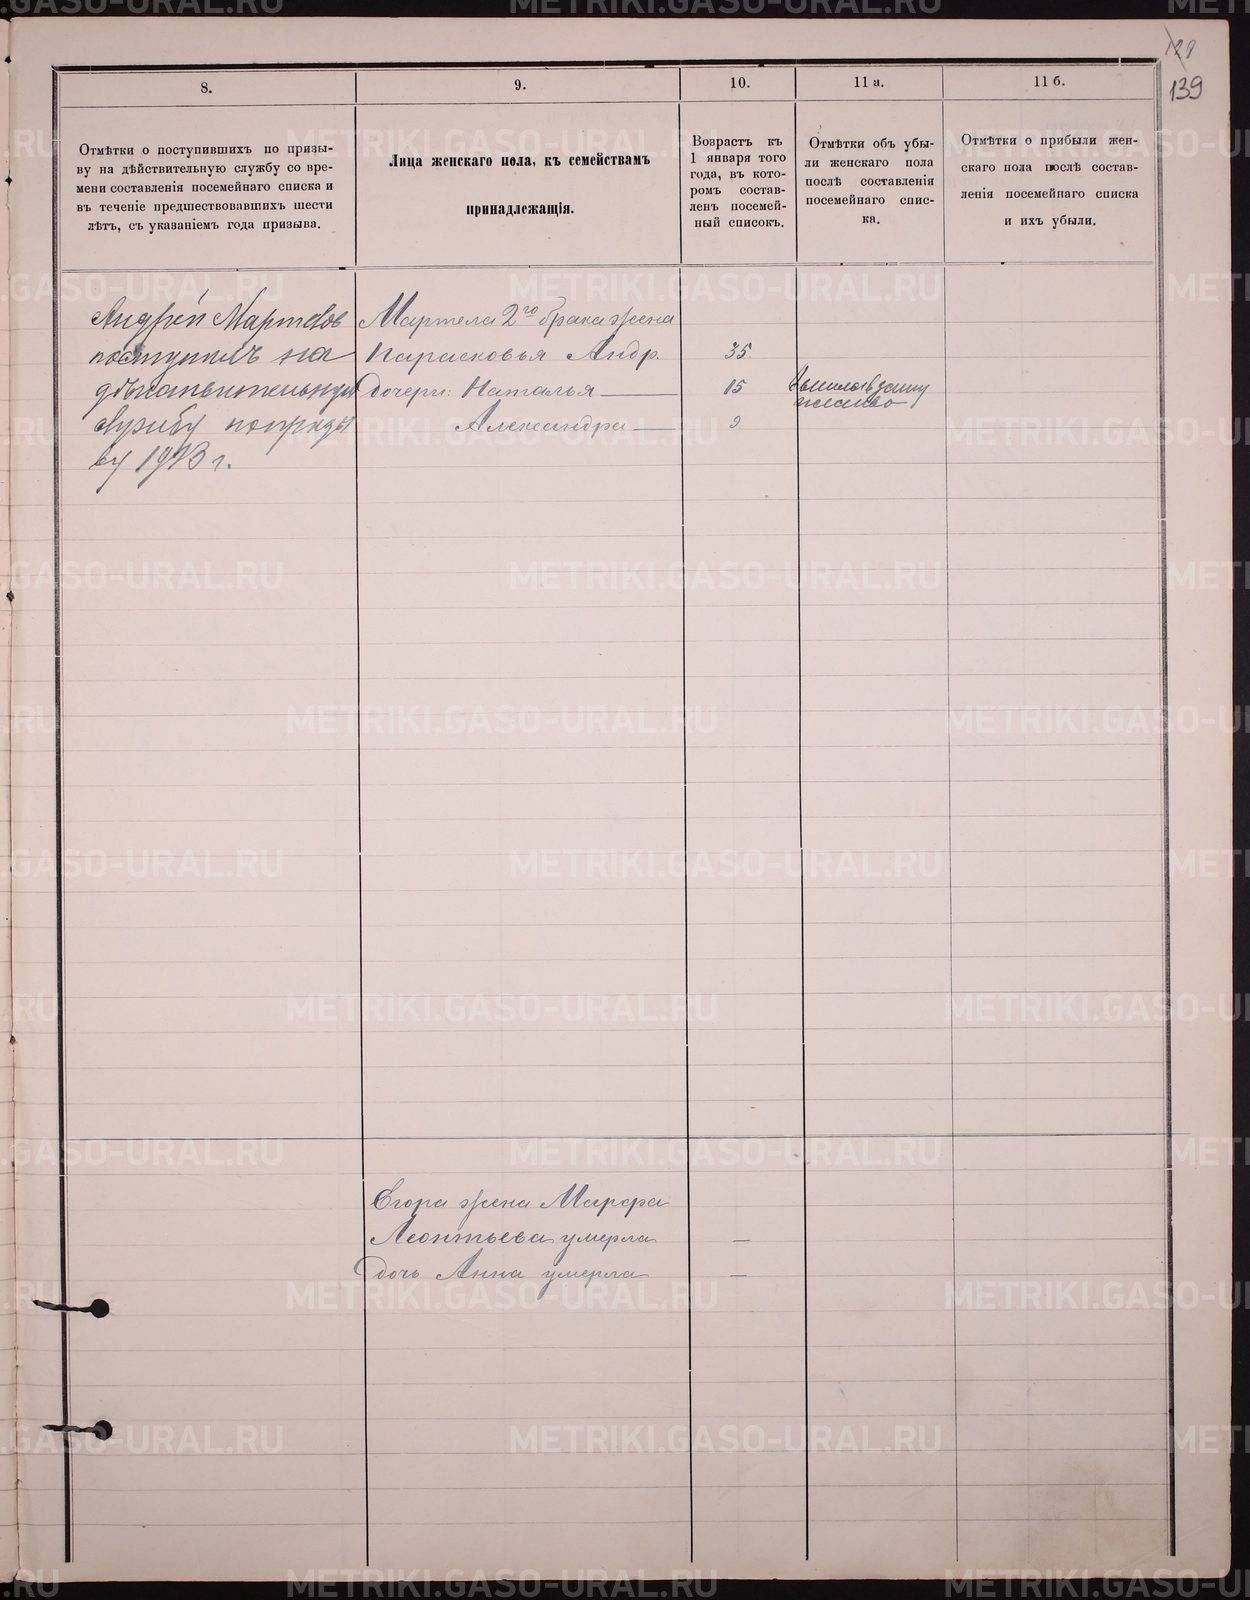 128
139
8.
9.
10.
11 а.
11 б.
Отмѣтки о поступившихъ по призы-
ву на дѣйствительную службу со вре-
мени составленія посемейнаго списка и
въ теченіе предшествовавшихъ шести
лѣтъ, съ указаніемъ года призыва.
Лица женскаго пола, къ семействамъ
принадлежащія.
Возрастъ къ
1 января того
года, въ кото-
ромъ состав-
ленъ посемей-
ный списокъ.
Отмѣтки объ убы-
ли женскаго пола
послѣ составленія
посемейнаго спис-
ка.
Отмѣтки о прибыли жен-
скаго пола послѣ состав-
ленія посемейнаго списка
и ихъ убыли.
Андрей Мартелов
поступилъ на
действительную
службу по призы
ву 1913 г.
Мартела 2го брака жена
Парасковья Андр. 35
Дочери: Наталья 15
Александра 9
Егора жена Марфа
Леонтьева умерла —
дочь Анна умерла —
METRIKI.GASO-URAL.RU